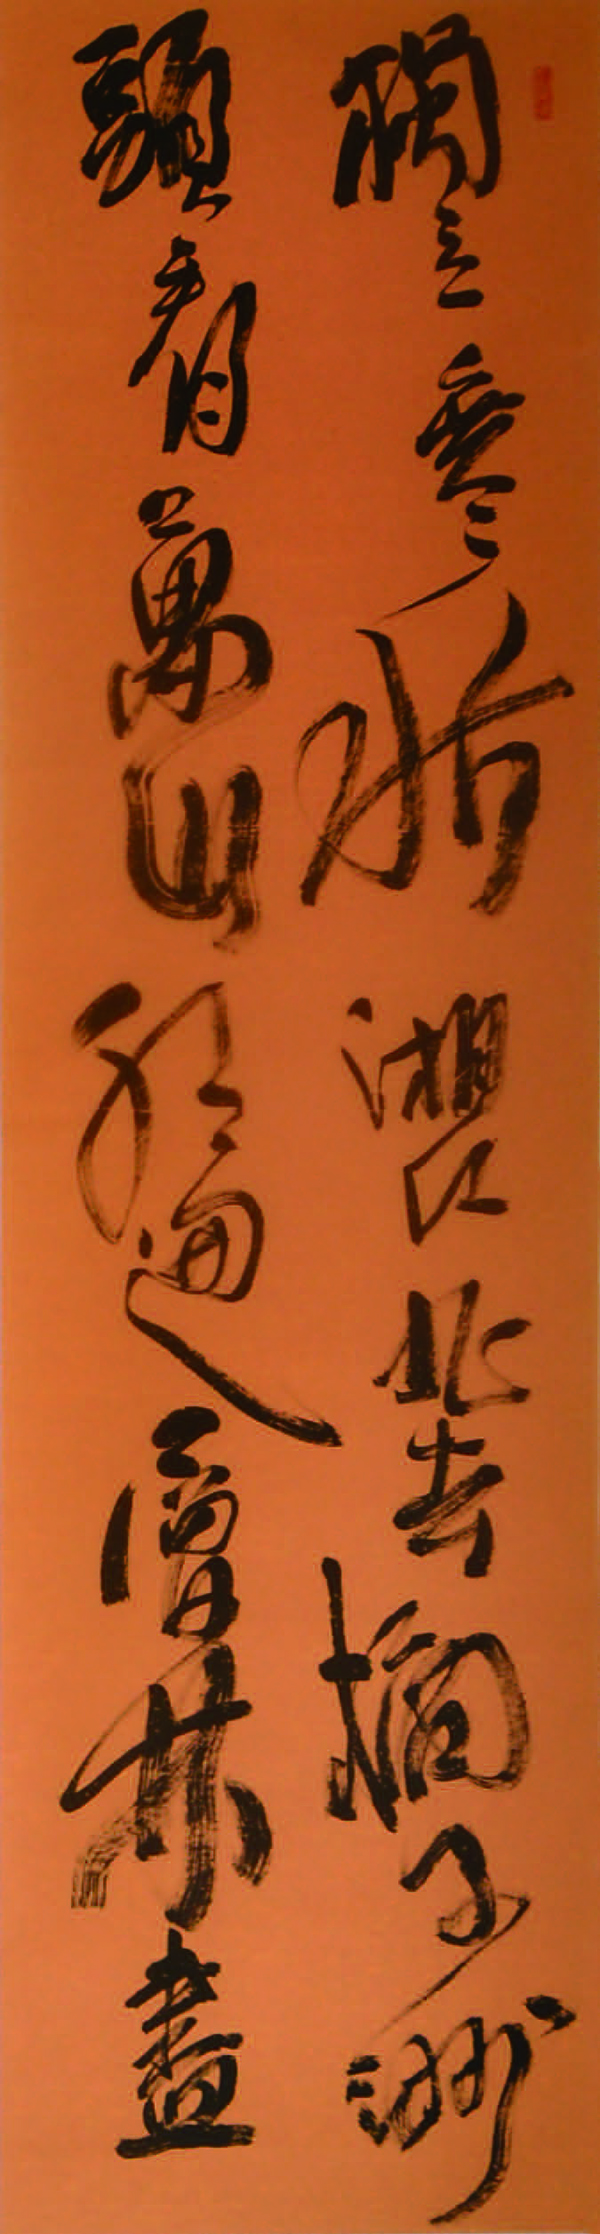 獨立寒秋湘江北去橘子洲
頭看萬山紅遍層林盡